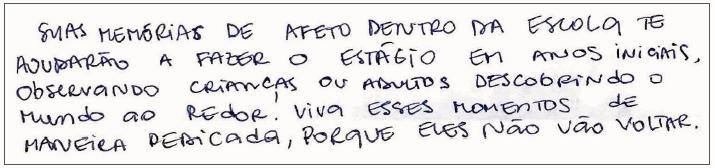 SUAS MEMÓRIAS DE AFETO DENTRO DA ESCOLA TE
AJUDARÃO A FAZER O ESTÁGIO EM ANOS INICIAIS,
OBSERVANDO CRIANÇAS OU ADULTOS DESCOBRINDO O
MUNDO AO REDOR. VIVA ESSES MOMENTOS DE
MANEIRA DEDICADA, PORQUE ELES NÃO VÃO VOLTAR.